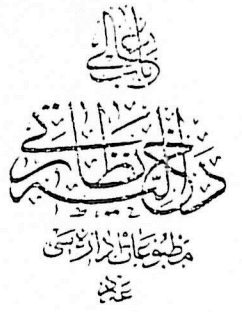 باب عالی
داخلیه نظارتی
مطبوعات اداره‌سی
عدد